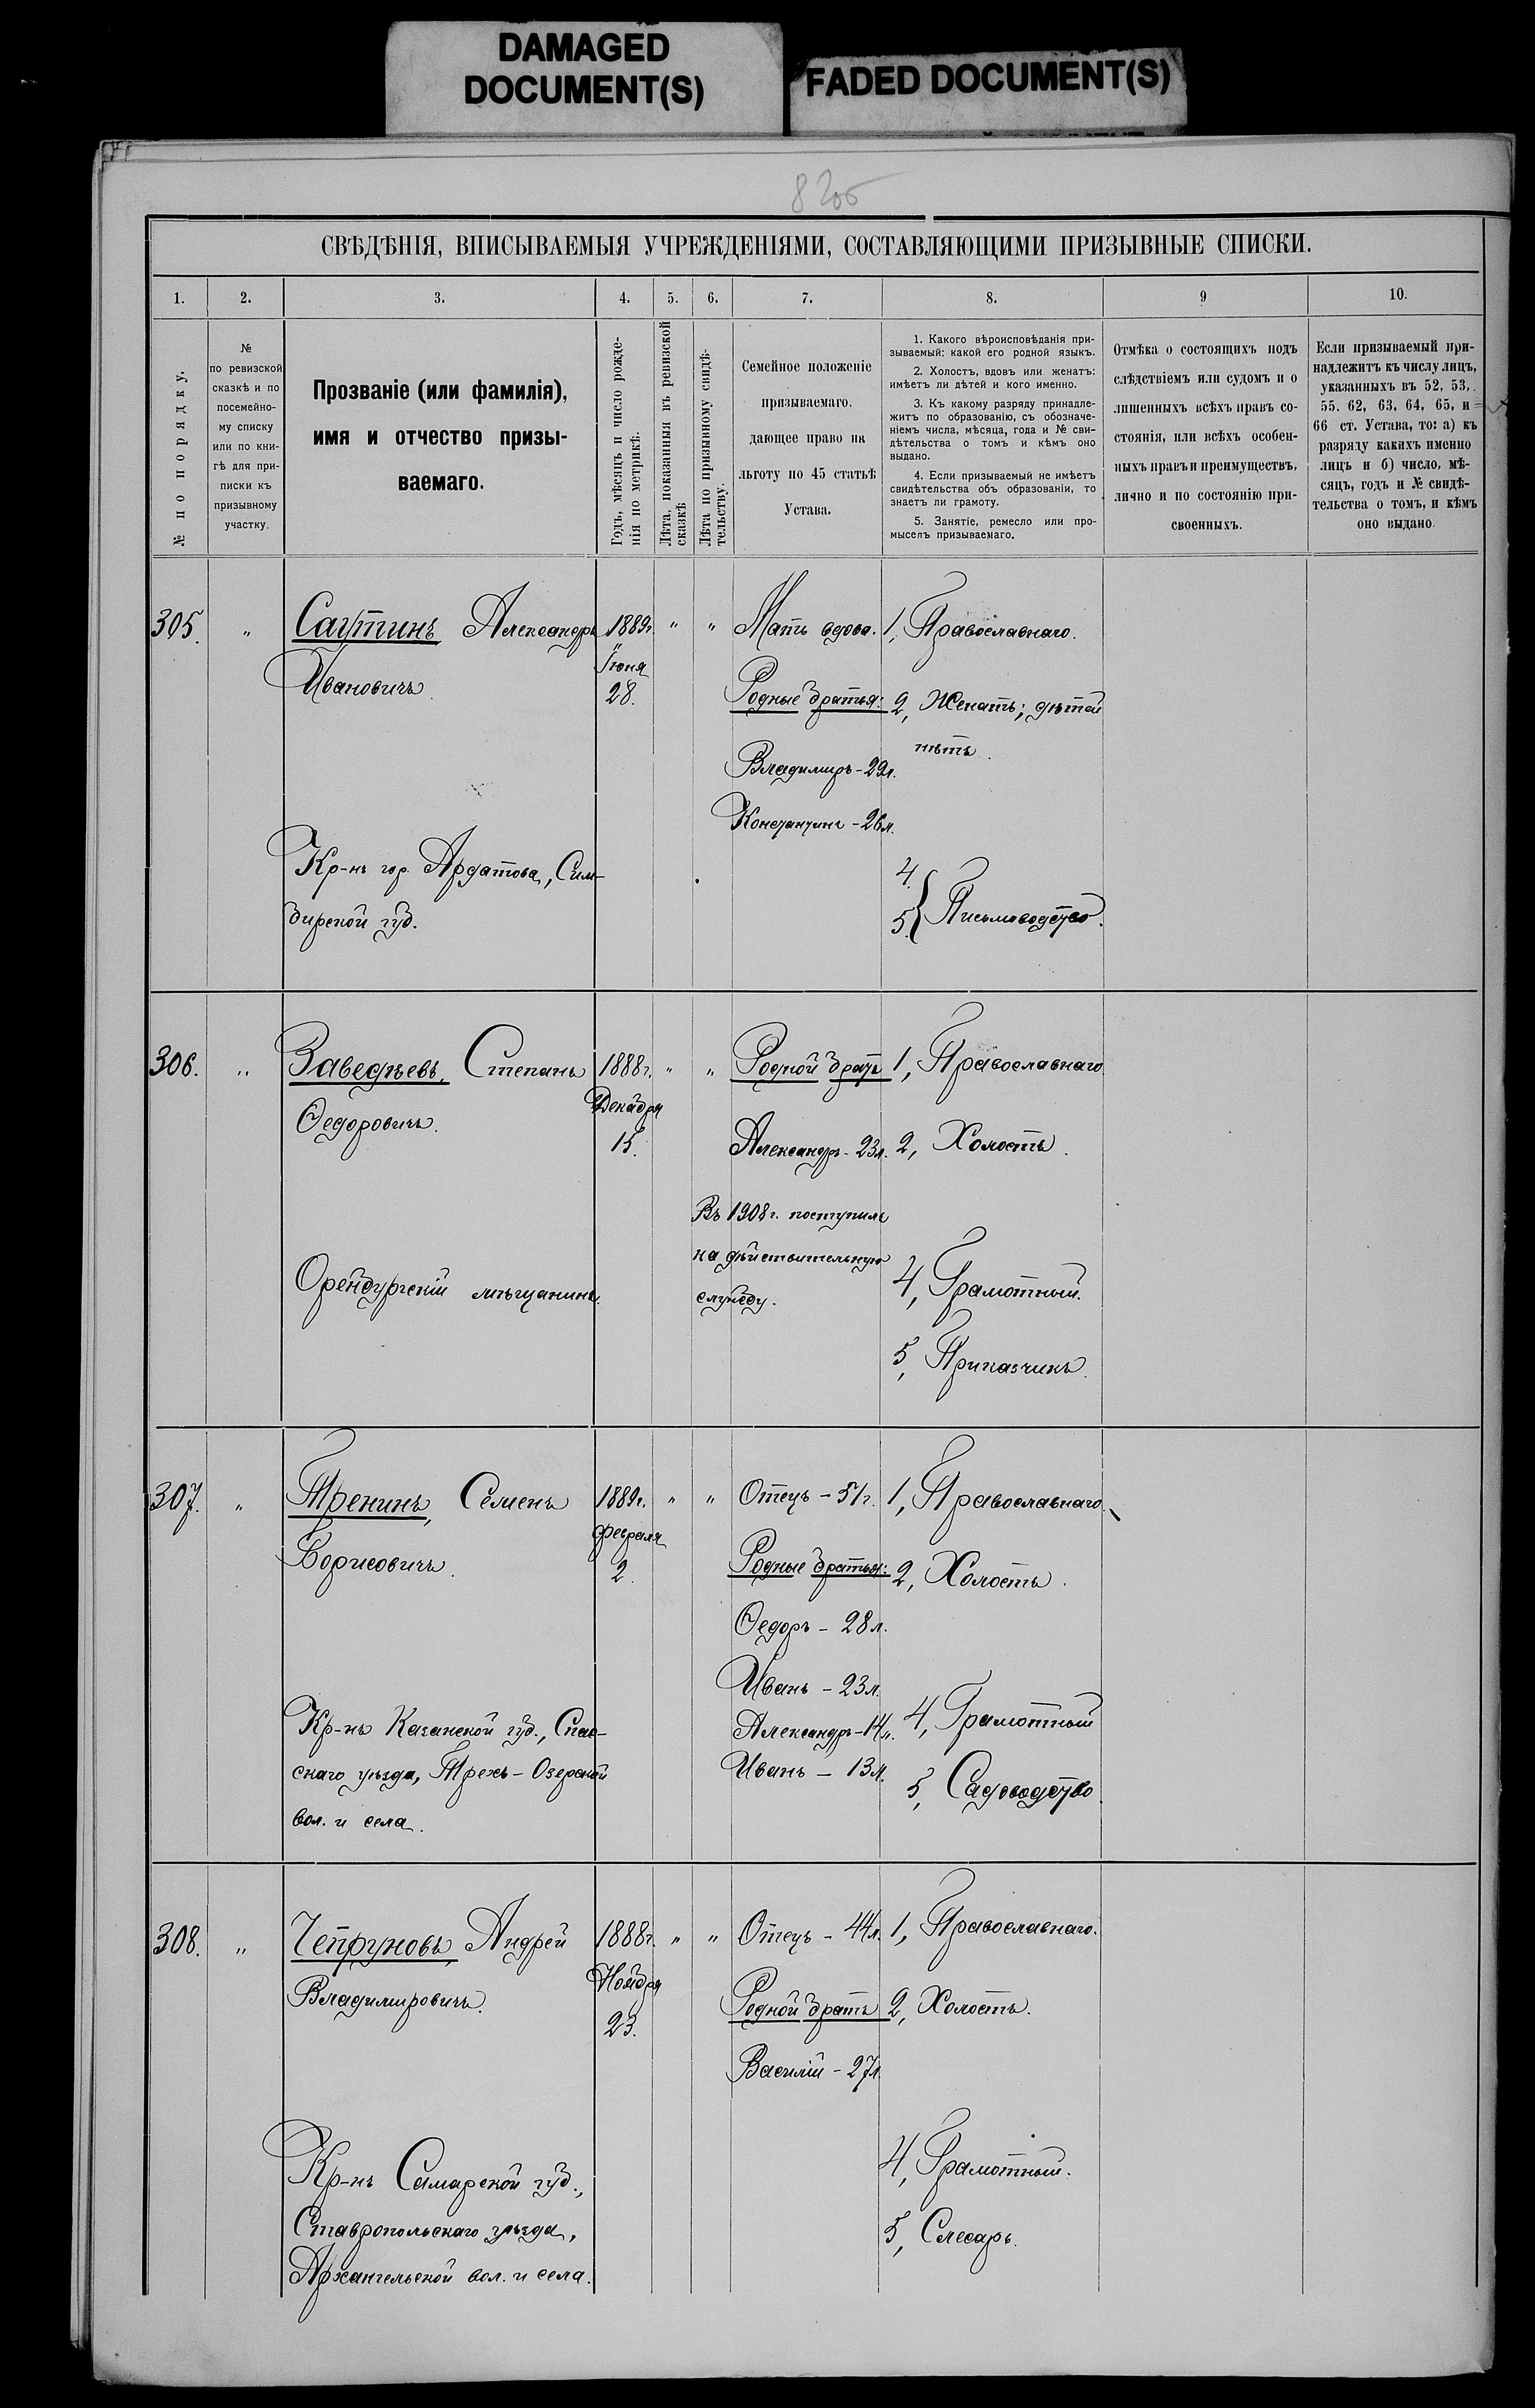 DAMAGED
DOCUMENT(S)
FADED DOCUMENT(S)
СВѢДѢНІЯ, ВПИСЫВАЕМЫЯ УЧРЕЖДЕНІЯМИ, СОСТАВЛЯЮЩИМИ ПРИЗЫВНЫЕ СПИСКИ.
1. 2. 3. 4. 5. 6. 7. 8. 9 10.
№ по порядку.
№
по ревизской
сказкѣ и по
посемейно-
му списку
или по кни-
гѣ для при-
писки къ
призывному
участку.
Прозваніе (или фамилія),
имя и отчество призы-
ваемаго.
Годъ, мѣсяцъ и число рожде-
нія по метрикѣ.
Лѣта, показанныя въ ревизской
сказкѣ
Лѣта по призывному свидѣ-
тельству.
Семейное положеніе
призываемаго,
дающее право на
льготу по 45 статьѣ
Устава.
1. Какого вѣроисповѣданія при-
зываемый: какой его родной языкъ.
2. Холостъ, вдовъ или женатъ:
имѣетъ ли дѣтей и кого именно.
3. Къ какому разряду принадле-
житъ по образованію, съ обозначе-
ніемъ числа, мѣсяца, года и № сви-
дѣтельства о томъ и кѣмъ оно
выдано.
4. Если призываемый не имѣетъ
свидѣтельства объ образованіи, то
знаетъ ли грамоту.
5. Занятіе, ремесло или про-
мыселъ призываемаго.
Отмѣка о состоящихъ подъ
слѣдствіемъ или судомъ и о
лишенныхъ всѣхъ правъ со-
стоянія, или всѣхъ особен-
ныхъ правъ и преимуществъ,
лично и по состоянію при-
своенныхъ.
Если призываемый при-
надлежитъ къ числу лицъ,
указанныхъ въ 52, 53,
55. 62, 63, 64, 65, и
66 ст. Устава, то: а) къ
разряду какихъ именно
лицъ и б) число, мѣ-
сяцъ, годъ и № свидѣ-
тельства о томъ, и кѣмъ
оно выдано.
305. " Саутинъ Александръ
Ивановичъ.
Кр-нъ гор. Ардатова, Сим-
бирской губ.
1889г.
Іюня
28.
" "
Мать вдова.
Родные братья:
Владиміръ - 29л.
Константинъ - 26л.
1, Православнаго.
2, Женатъ; дѣтей
нѣтъ.
4.
5. Письмоводство.
306. " Заведѣевъ, Степанъ
Ѳедоровичъ.
Оренбургскій мѣщанинъ.
1888г.
Декабря
15.
" "
Родной братъ
Александръ - 23л.
Въ 1908г. поступилъ
на дѣйствительную
службу.
1, Православнаго.
2, Холостъ.
4, Грамотный.
5, Приказчикъ.
307. " Тренинъ, Семенъ
Борисовичъ.
Кр-нъ Казанской губ., Спас-
скаго уѣзда, Трехъ-Озерской
вол. и села.
1889г.
Февраля
2.
" "
Отецъ - 51г.
Родные братья:
Ѳедоръ - 28л.
Иванъ - 23л.
Александръ - 14л.
Иванъ - 13л.
1, Православнаго.
2, Холостъ.
4, Грамотный
5, Садоводство.
308. " Чепруновъ, Андрей
Владиміровичъ.
Кр-нъ Самарской губ.,
Ставропольскаго уѣзда,
Архангельской вол. и села.
1888г.
Ноября
23.
" "
Отецъ - 44л.
Родной братъ
Василій - 27л.
1, Православнаго.
2, Холостъ.
4, Грамотный.
5, Слесарь.